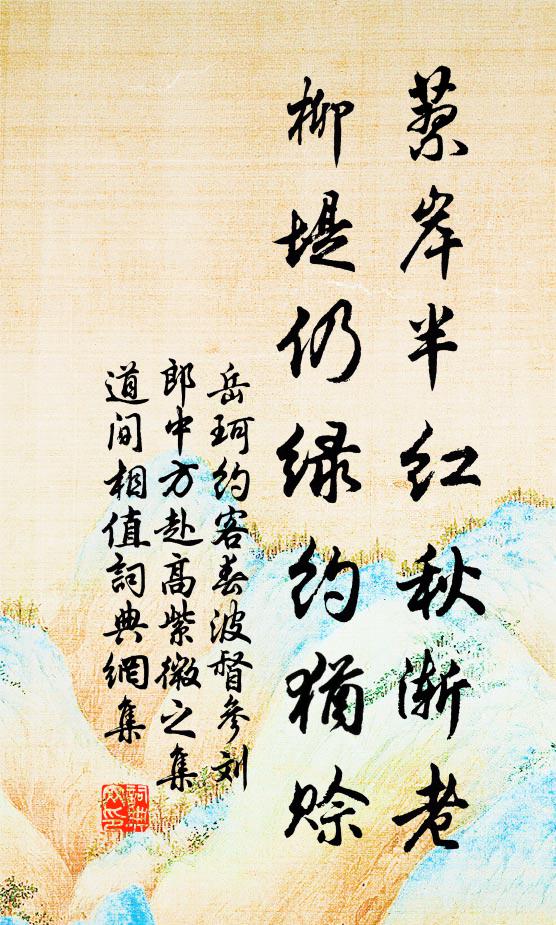 蓼岸半红秋渐老
柳堤仍绿约犹赊
岳珂约客春波督参刘
郎中方赴高紫微之集
道间相值詞典網集